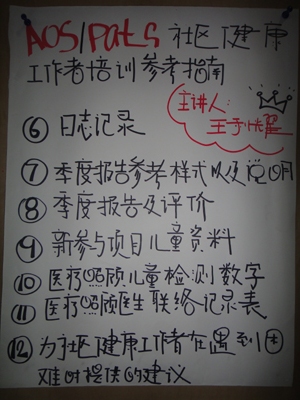 AOS/Pats 社区健康
工作者培训参考指南
主讲人:
王子快跑
⑥ 日志记录
⑦ 季度报告参考样式以及说明
⑧ 季度报告及评价
⑨ 新参与项目儿童资料
⑩ 医疗照顾儿童检测数字
⑪ 医疗照顾医生联络记录表
⑫ 为社区健康工作者在遇到困
难时提供的建议